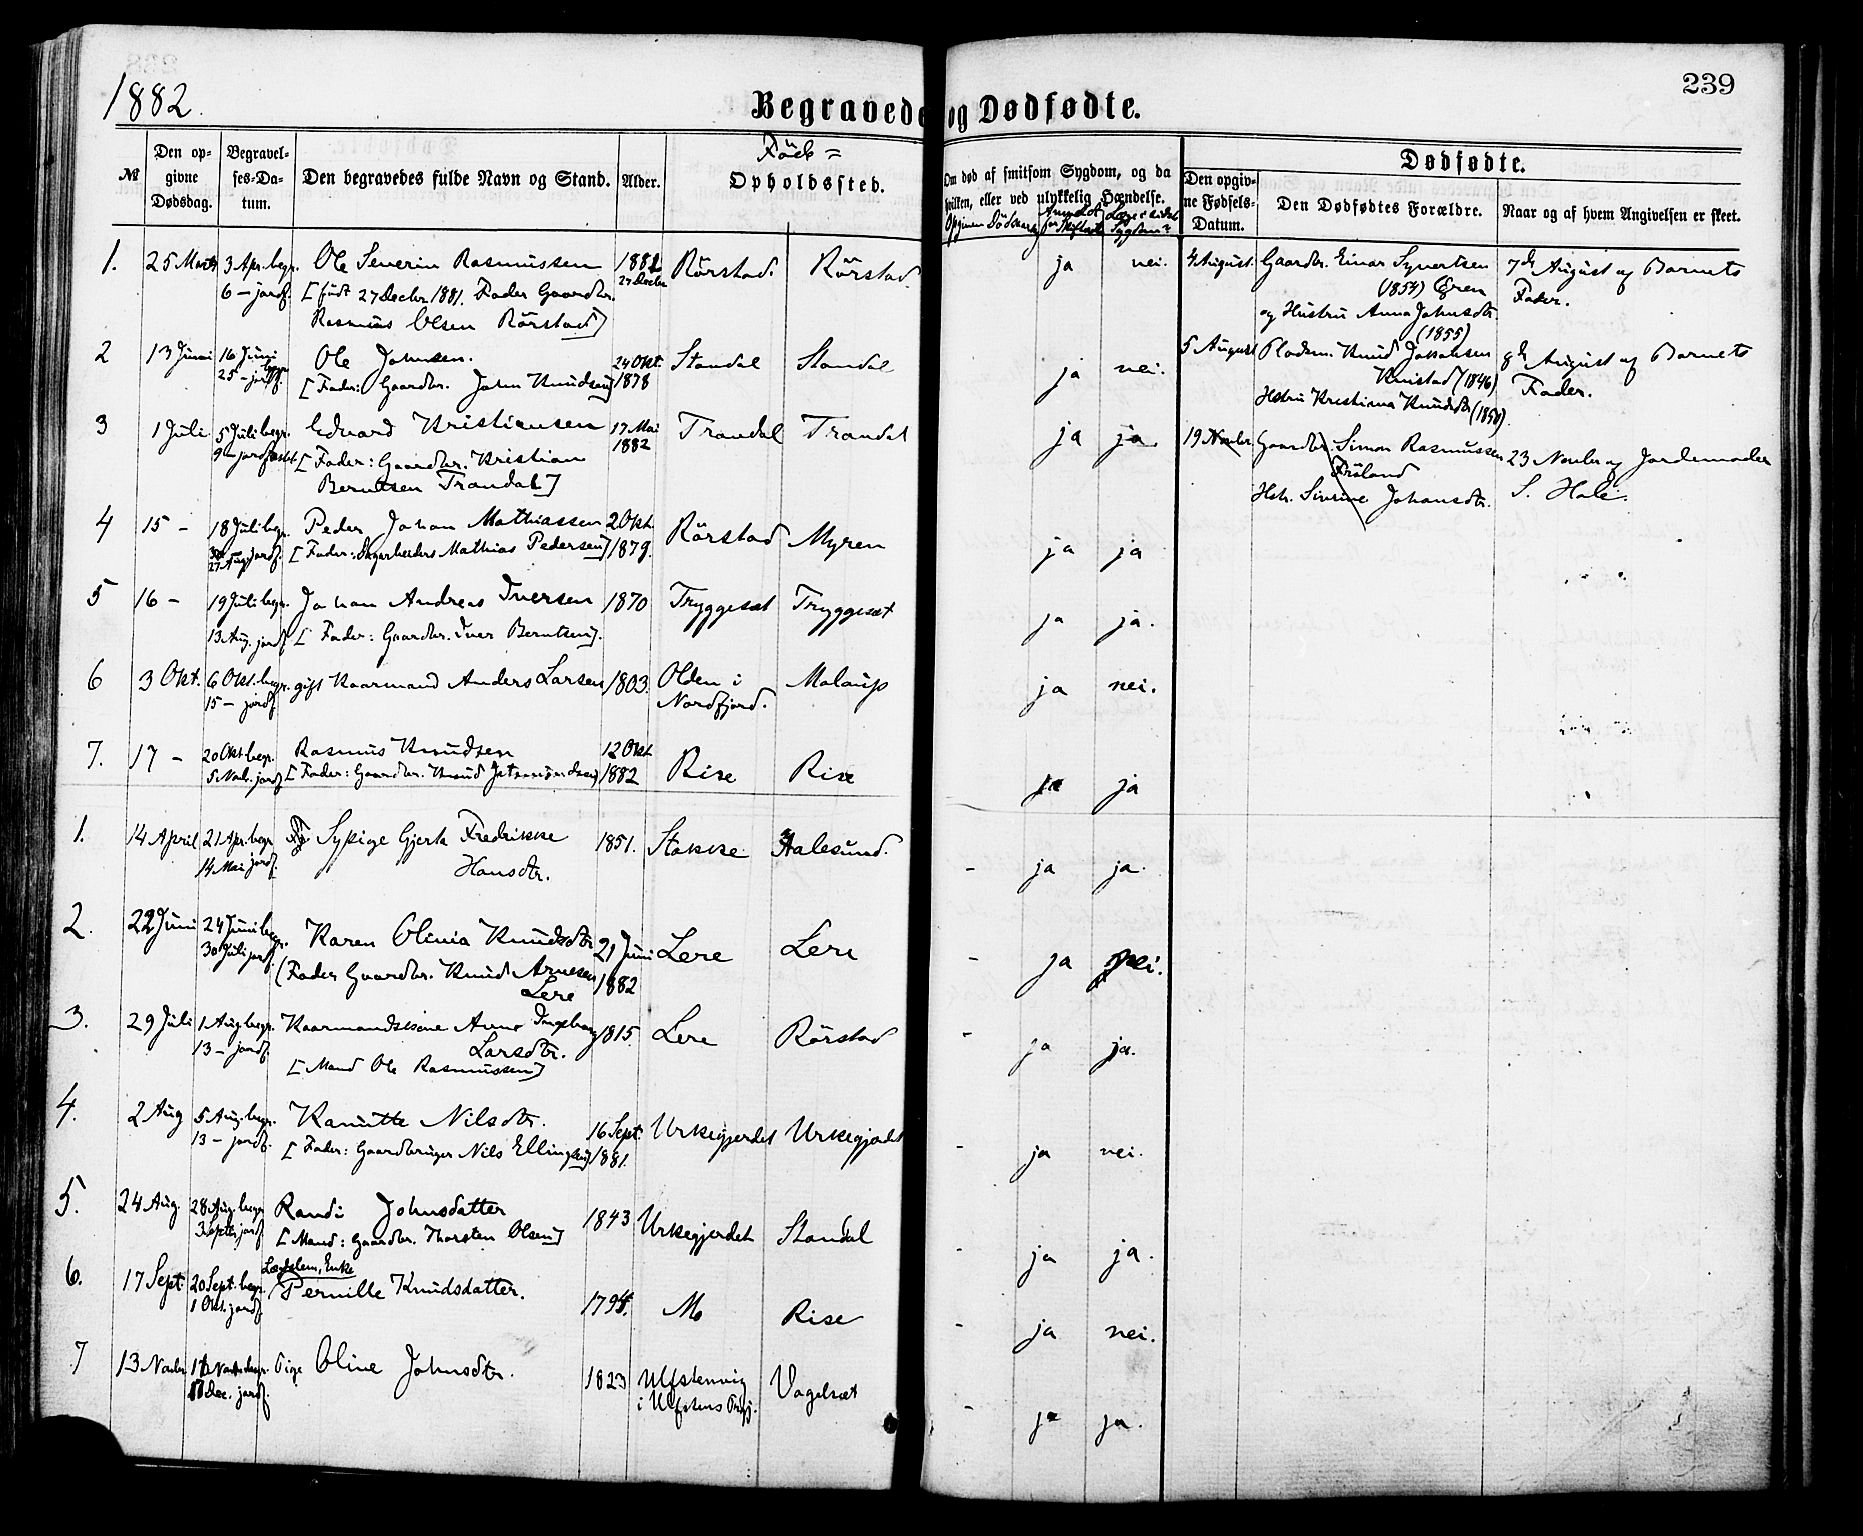 1882.
239
Begravede og Dødfødte.
№
Den op-
givne
Dødsdag.
Begravel-
ses-Da-
tum.
Den begravedes fulde Navn og Stand.
Alder.
Föde =
Opholdssted.
Om død af smitsom Sygdom, og da
hvilken, eller ved ulykkelig Hændelse.
Anmeldt
Dødfødte.
Den opgiv-
ne Fødsels-
Datum.
Den Dødfødtes Forældre.
Naar og af hvem Angivelsen er skeet.
1. 25 Marts 3 Apr. begr. Ole Severin Rasmussen 1881 Rörstad Rörstad ja nei.
6 – jordf. [født 27 Decbr. 1881. Fader Gaardbr. 27 Decbr
Rasmus Olsen Rörstad]
2 13 Juni 16 Juni Ole Johnsen. 24 Okt. Standal Standal ja nei.
25 – jordf. [Fader: Gaardbr. John Knudsen] 1878
3 1 Juli 5 Juli begr. Edvard Kristiansen 17 Mai Trandal Trandal ja ja
9 – jordfæstet [Fader: Gaardbr. Kristian 1882
Berntsen Trandal]
4 15 – 18 Juli begr. Peder Johan Mathiassen 2 Okt. Rörstad Myren ja ja
27 Aug jordf. [Fader: Dagarbeider Mathias Pedersen] 1879.
5 16 – 19 Juli begr. Johan Andreas Iversen 1870 Tryggesæt Tryggesæt ja ja.
13 Aug. jordf. [Fader: Gaardbr. Iver Berntsen].
6 3 Okt. 6 Okt. begr. gift Kaarmand Anders Larsen 1803. Olden i Molaup ja nei.
15 – jordf. Nordfjord.
7. 17 – 20 Okt begr. Rasmus Knudsen 12 Okt Rise Rise ja ja
5 Novb. jordf [Fader: Gaardbr. Knud Jetmundsen] 1882
1. 14 April 21 Apr. begr. Pige Gjerta Fredrikke 1851. Stokke Aalesund. - ja ja.
14 Mai jordf. Hansdtr.
2. 22 Juni 24 Juni begr. Karen Olivia Knudsdtr 21 Juni Lere Lere - ja nei.
30 Juli jordf. (Fader Gaardbr. Knud Arnesen 1882
Lere
3. 29 Juli 1 Aug begr. Kaarmandskone Anne Ingeborg 1815. Lere Rörstad - ja ja.
13 – jordf. Larsdtr.
[Mand Ole Rasmussen]
4. 2 Aug 5 Aug. begr. Kanutte Nilsdtr. 16 Sept. Urkegjerdet Urkegjerdet - ja nei.
13 – jordf. [Fader: Gaardbruger Nils Ellingsen] 1881.
5. 24 Aug. 28 Aug. begr. Randi Johnsdatter 1843 Urkegjerdet Standal - ja ja.
3 Septbr jordf [Mand: Gaardbr. Thorsten Olsen]
6. 17 Sept. 20 Sept. begr. Lægdslem, Enke
1 Okt. jordf. Pernille Knudsdatter. 1794. Mo Rise - ja nei.
7 13 Novbr. Pige Oline Johnsdtr. 1823 Ulfstenvig Vagelsæt - ja ja.
Dec. jordf. i Ulfstens
4 August. Gaardbr. Einar Syvertsen 7de August af Barnets
(1854) Ören Fader.
og Hustru Anna Johnsdtr.
(1855)
5 August Knud Jakobsen 8de August af Barnets
(1846) Fader.
Hstru Kristiana Knudsdtr
19 Novbr. Gaardbr. Simon Rasmussen 23 Novbr af Jordemoder
S. Hole.
Hstr. Johansdtr.